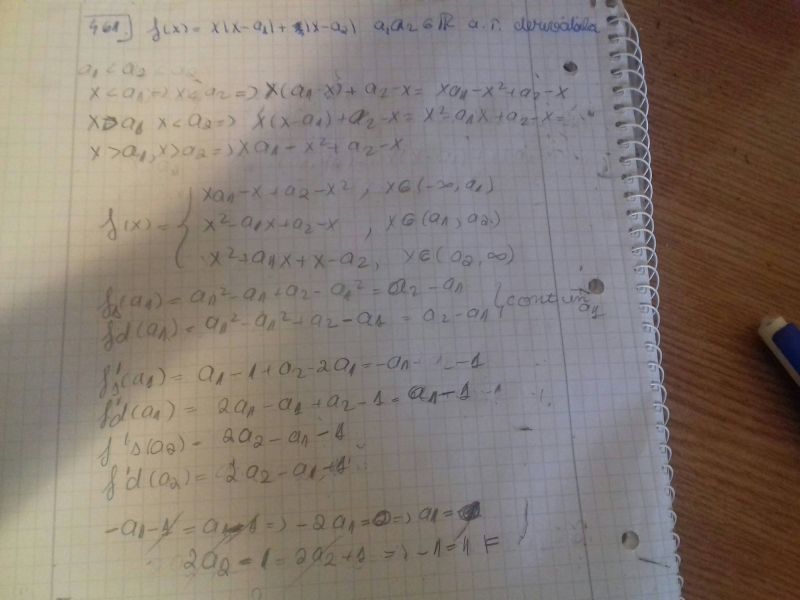 461. f(x) = x|x-a₁| + |x-a₂| a₁a₂ ∈ ℝ a.î. derivabila
a₁ < a₂
x<a₁ => x<a₂ => x(a₁-x)+a₂-x = xa₁-x²+a₂-x
x>a₁ x<a₂ => x(x-a₁)+a₂-x = x²-a₁x+a₂-x =
x>a₁, x>a₂ => xa₁-x²+a₂-x
f(x) = { xa₁-x+a₂-x², x∈(-∞,a₁)
x²-a₁x+a₂-x, x∈(a₁,a₂)
x²+a₁x+x-a₂, x∈(a₂,∞)
fs(a₁) = a₁²-a₁+a₂-a₁² = a₂-a₁ } contin a₁
fd(a₁) = a₁²-a₁²+a₂-a₁ = a₂-a₁
f's(a₁) = a₁-1+a₂-2a₁ = -a₁ -1
f'd(a₁) = 2a₁-a₁+a₂-1 = a₁-1
f's(a₂) = 2a₂-a₁-1
f'd(a₂) = 2a₂-a₁+1
-a₁-1 = a₁-1 => -2a₁=0 => a₁=0
2a₂-1 = 2a₂+1 => -1=1 F